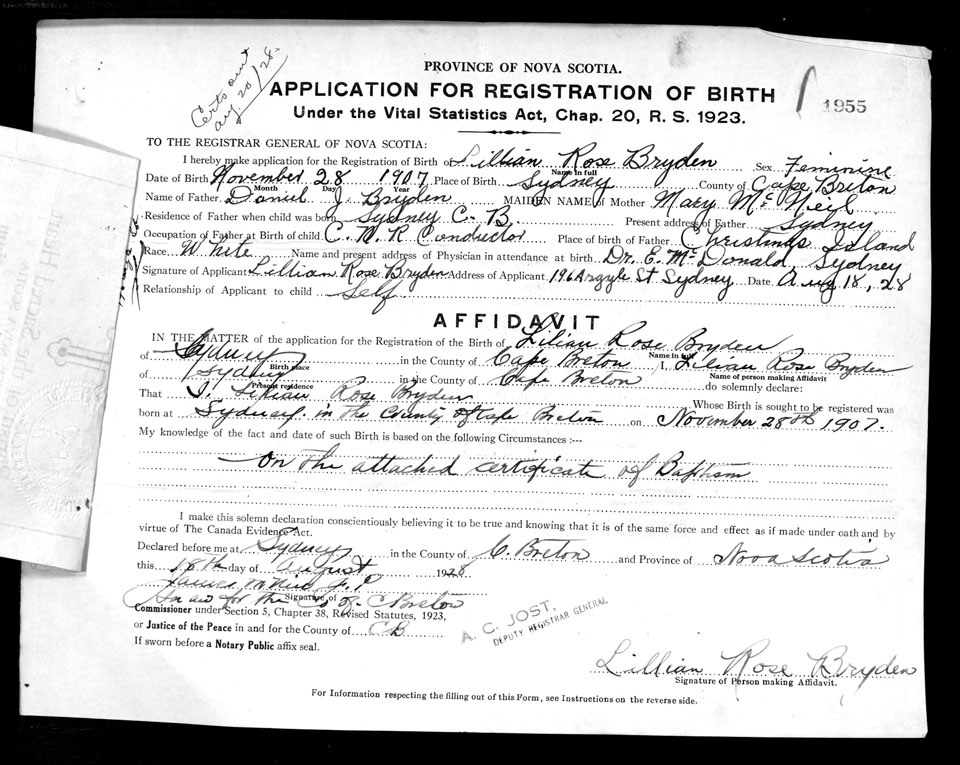 Certs out
Aug. 20/28.
PROVINCE OF NOVA SCOTIA.
APPLICATION FOR REGISTRATION OF BIRTH
1955
Under the Vital Statistics Act, Chap. 20, R. S. 1923.
TO THE REGISTRAR GENERAL OF NOVA SCOTIA:
I hereby make application for the Registration of Birth of Lillian Rose Bryden Sex Feminine
Name in full
Date of Birth November 28 1907 Place of Birth Sydney County of Cape Breton
Month Day Year
Name of Father Daniel J Bryden MAIDEN NAME of Mother Mary McNeil
Residence of Father when child was born Sydney C. B. Present address of Father Sydney
Occupation of Father at Birth of child C. N. R Conductor Place of birth of Father Christmas Island
Race White Name and present address of Physician in attendance at birth Dr. E. McDonald Sydney
Signature of Applicant Lillian Rose Bryden Address of Applicant 196 Argyle St Sydney Date Aug 18, 28
Relationship of Applicant to child Self
AFFIDAVIT
IN THE MATTER of the application for the Registration of the Birth of Lilian Rose Bryden
Name in full
of Sydney in the County of Cape Breton I, Lilian Rose Bryden
Birth place Name of person making Affidavit
of Sydney in the County of Cape Breton do solemnly declare:
Present residence
That I. Lilian Rose Bryden Whose Birth is sought to be registered was
born at Sydney in the County of Cape Breton on November 28th 1907.
My knowledge of the fact and date of such Birth is based on the following Circumstances :--
On the attached certificate of Baptism
I make this solemn declaration conscientiously believing it to be true and knowing that it is of the same force and effect as if made under oath and by
virtue of The Canada Evidence Act.
Declared before me at Sydney in the County of C. Breton and Province of Nova Scotia
this 18th day of August 1928
James McNeil J. P
Signature of
In and for the Co of C Breton
Commissioner under Section 5, Chapter 38, Revised Statutes, 1923,
or Justice of the Peace in and for the County of C B
If sworn before a Notary Public affix seal.
A. C. JOST,
DEPUTY REGISTRAR GENERAL
Lillian Rose Bryden
Signature of Person making Affidavit.
For Information respecting the filling out of this Form, see Instructions on the reverse side.